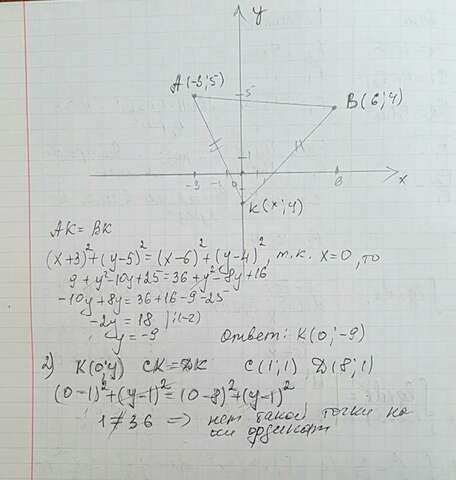 y
A(-3;5)
5
B(6;4)
1
-3
-1
0
1
6
x
K(x;y)
AK = BK
(x+3)²+(y-5)²=(x-6)²+(y-4)², т.к. x=0, то
9+y²-10y+25=36+y²-8y+16
-10y+8y=36+16-9-25
-2y=18 |:(-2)
y=-9
Ответ: K(0;-9)
2) K(0;y) CK=DK C(1;1) D(8;1)
(0-1)²+(y-1)²=(0-8)²+(y-1)²
1≠36 => нет такой точки на
оси ординат